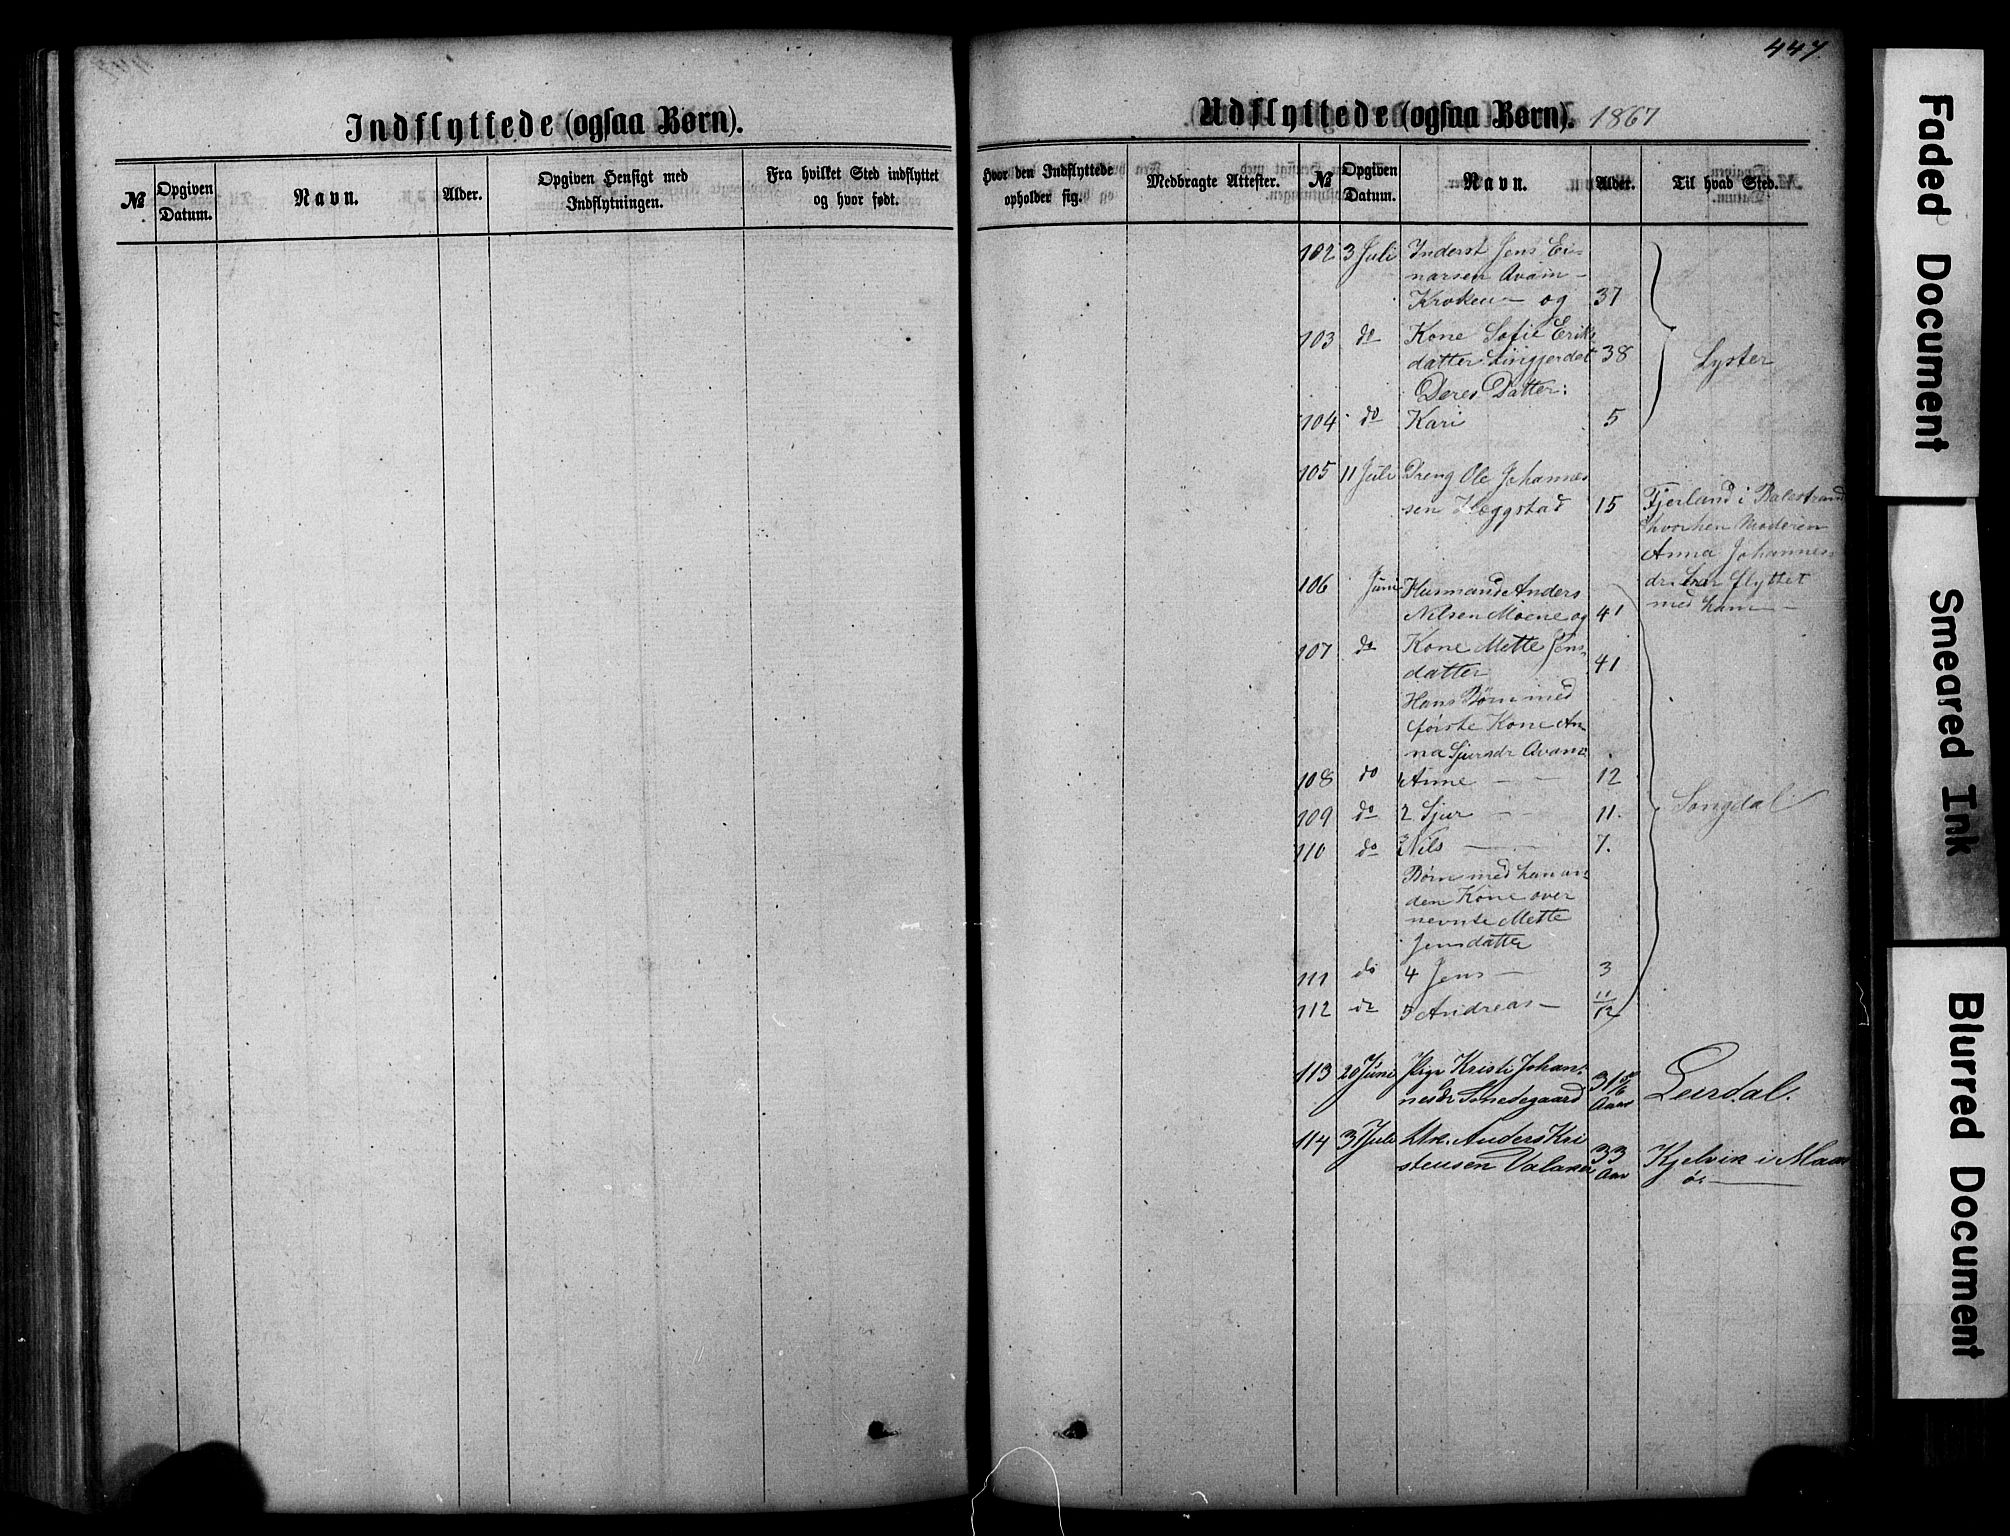 447.
Indflyttede (ogsaa Børn).
№
Opgiven Datum.
Navn.
Alder.
Opgiven Hensigt med Indflytningen.
Fra hvilket Sted indflyttet og hvor født.
Udflyttede (ogsaa Børn). 1867
Hvor den Indflyttede opholder sig.
Medbragte Attester.
№
Opgiven Datum.
Navn.
Alder.
Til hvad Sted.
102 3 Juli Inderst Jens Ei-
narsen Avam-
Kroken og 37
103 do Kone Sofie Eriks
datter 38
Lyster
Deres Datter:
104 do Kari 5
105 11 Juli Dreng Ole Johannes
sen Heggstad 15 Fjerland i Balestrand
hvorhen Moderen
Anna Johannes-
dr har flyttet
med ham
106 Juni Husmand Anders
Nilsen Moene og 41
107 do Kone Mette Jens-
datter 41
Hans Børn med
første Kone An-
na Sjursdr
108 do 1 Anne 12
109 do 2 Sjur 11.
Songdal
110 do 3 Nils 7.
Børn med han an-
den Kone over
nevnte Mette
Jensdatter
111 do 4 Jens 3
112 do 5 Andreas 11/12
113 20 Juni Pige Kristi Johan-
nesdr 31 5/6 Aar Leirdal.
114 3 Juli Anders Kri
stensen 33 Aar Kjelvik i Maas
ø
Faded Document
Smeared Ink
Blurred Document